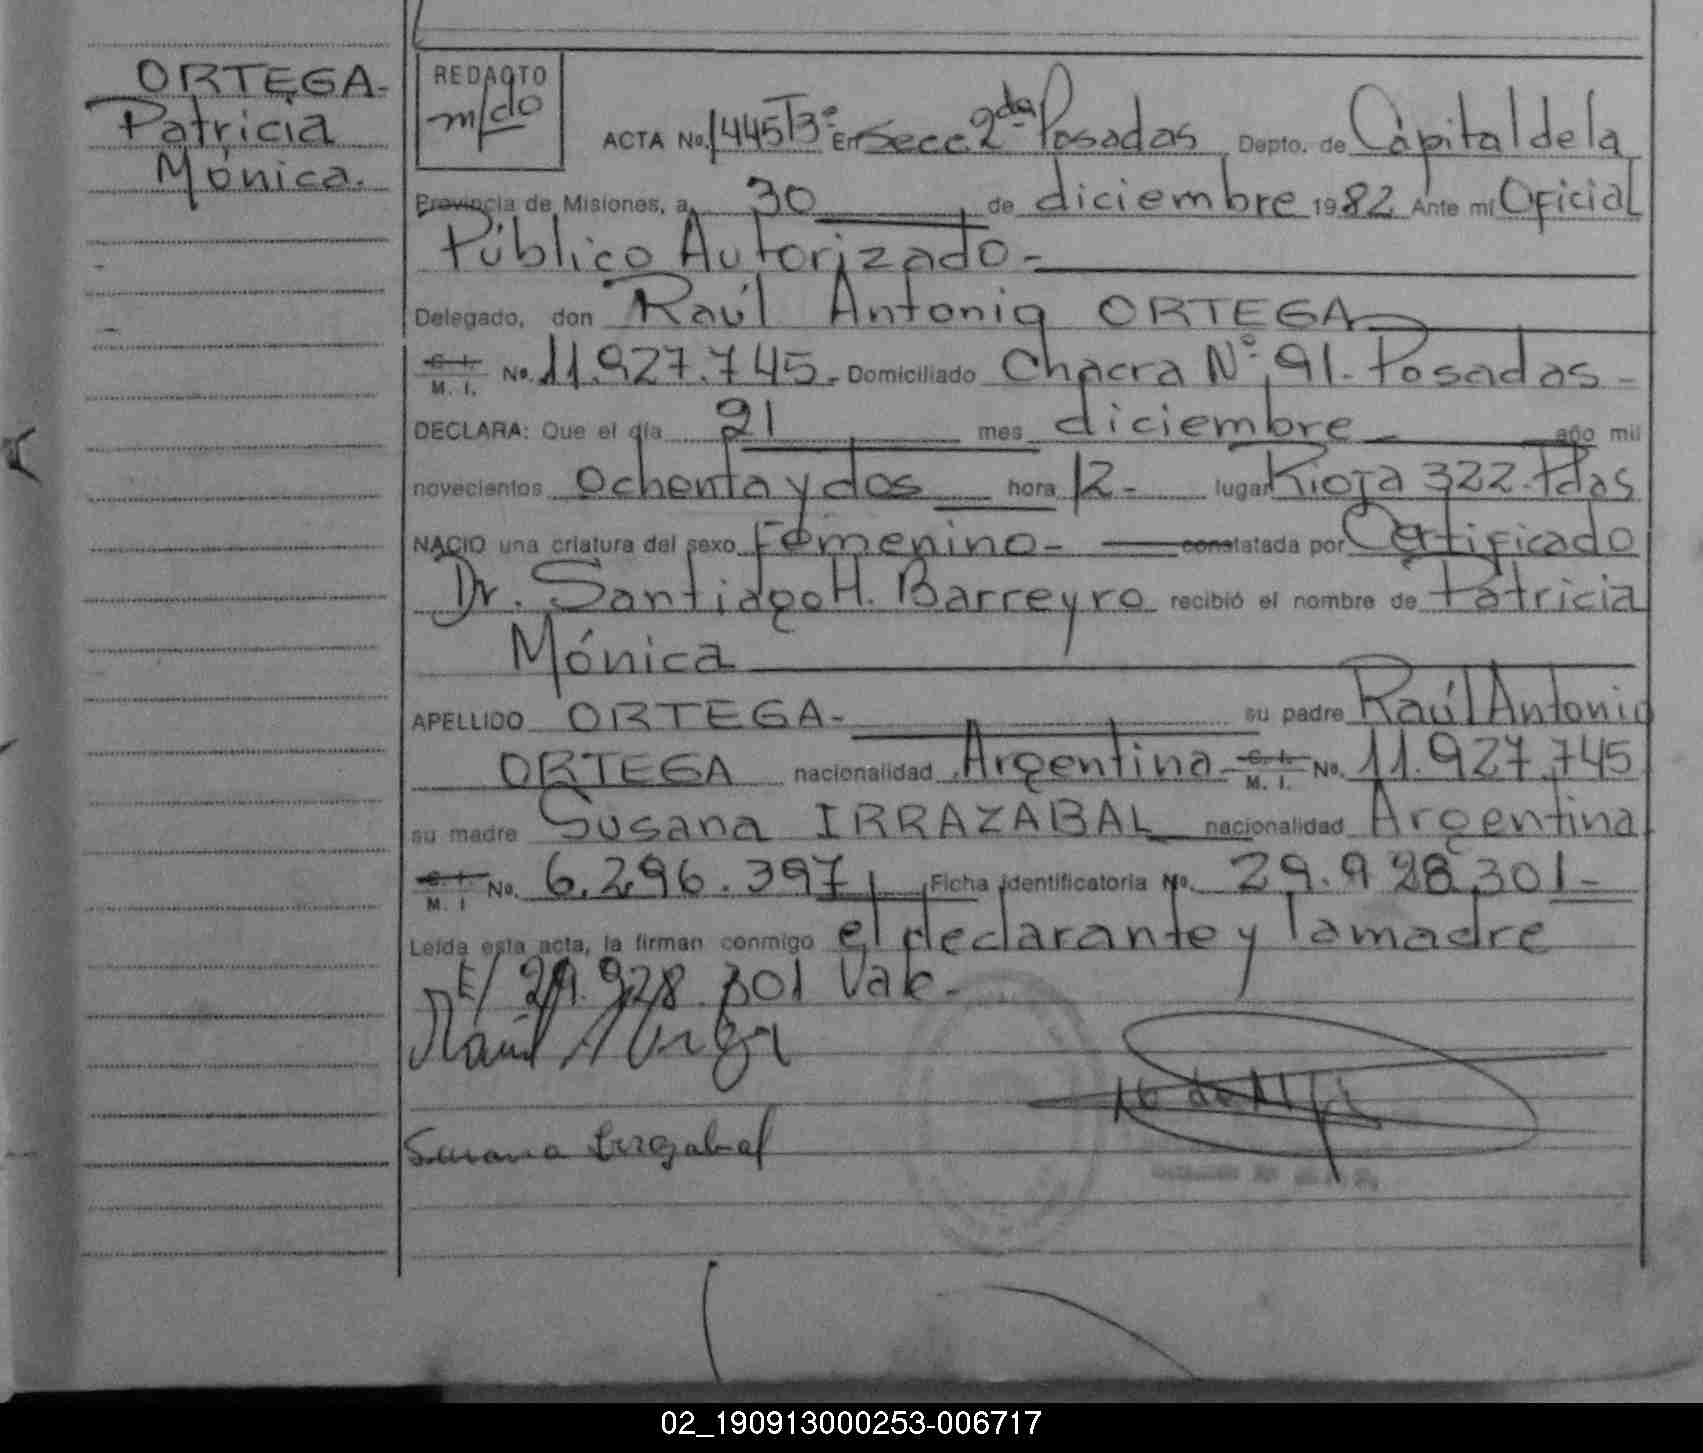 ORTEGA-
Patricia
Mónica.
REDACTO
m/do
ACTA No. 1445T3º En Secc. 2da Posadas Depto. de Capital de la
Provincia de Misiones, a 30 de diciembre 1982 Ante mí Oficial
Público Autorizado-
Delegado, don Raúl Antonio ORTEGA
C. I. / M. I. No. 11.927.745- Domiciliado Chacra Nº 91- Posadas-
DECLARA: Que el día 21 mes diciembre- año mil
novecientos ochenta y dos hora 12- lugar Rioja 322- Pdas
NACIO una criatura del sexo Femenino- constatada por Certificado
Dr. Santiago H. Barreyro recibió el nombre de Patricia
Mónica
APELLIDO ORTEGA- su padre Raúl Antonio
ORTEGA nacionalidad Argentina- C. I. / M. I. No. 11.927.745
su madre Susana IRRAZABAL nacionalidad Argentina
C. I. / M. I No. 6.296.397 Ficha identificatoria No. 29.928.301-
Leída esta acta, la firman conmigo el declarante y la madre
E/ 29.928.301 Vale-
Raúl A Ortega
Susana Irrazabal
02_190913000253-006717